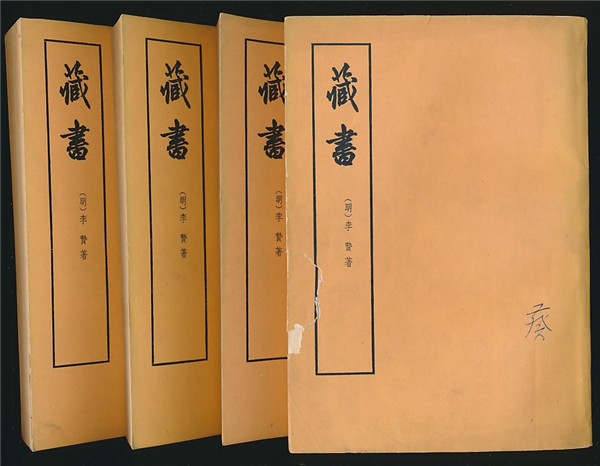 藏書
(明)李贄著
藏書
(明)李贄著
藏書
(明)李贄著
藏書
(明)李贄著